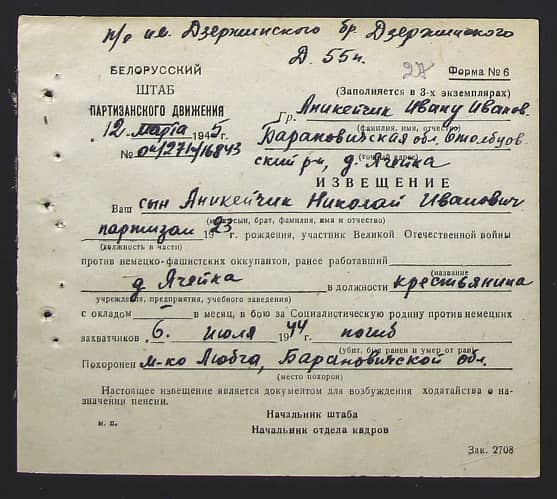 п/о им. Дзержинского бр. Дзержинского
Д. 55п.
27
БЕЛОРУССКИЙ
ШТАБ
ПАРТИЗАНСКОГО ДВИЖЕНИЯ
12 марта 1945г.
№ 04/271/16843
Форма № 6
(Заполняется в 3-х экземплярах)
Гр. Аникейчик Ивану Иванов.
(фамилия, имя, отчество)
Барановичская обл. Столбцов
ский р-н, д. Ячейка
(точный адрес)
ИЗВЕЩЕНИЕ
Ваш сын Аникейчик Николай Иванович
(муж, сын, брат, фамилия, имя и отчество)
партизан 1923 г. рождения, участник Великой Отечественной войны
(должность в части)
против немецко-фашистских оккупантов, ранее работавший
(название
д Ячейка в должности крестьянина
учреждения, предприятия, учебного заведения)
с окладом — в месяц, в бою за Социалистическую родину против немецких
захватчиков 6. июля 1944 г. погиб
(убит, был ранен и умер от ран)
Похоронен м-ко Любча, Барановичской обл.
(место похорон)
Настоящее извещение является документом для возбуждения ходатайства о на-
значении пенсии.
Начальник штаба
м. п.
Начальник отдела кадров
Зак. 2708